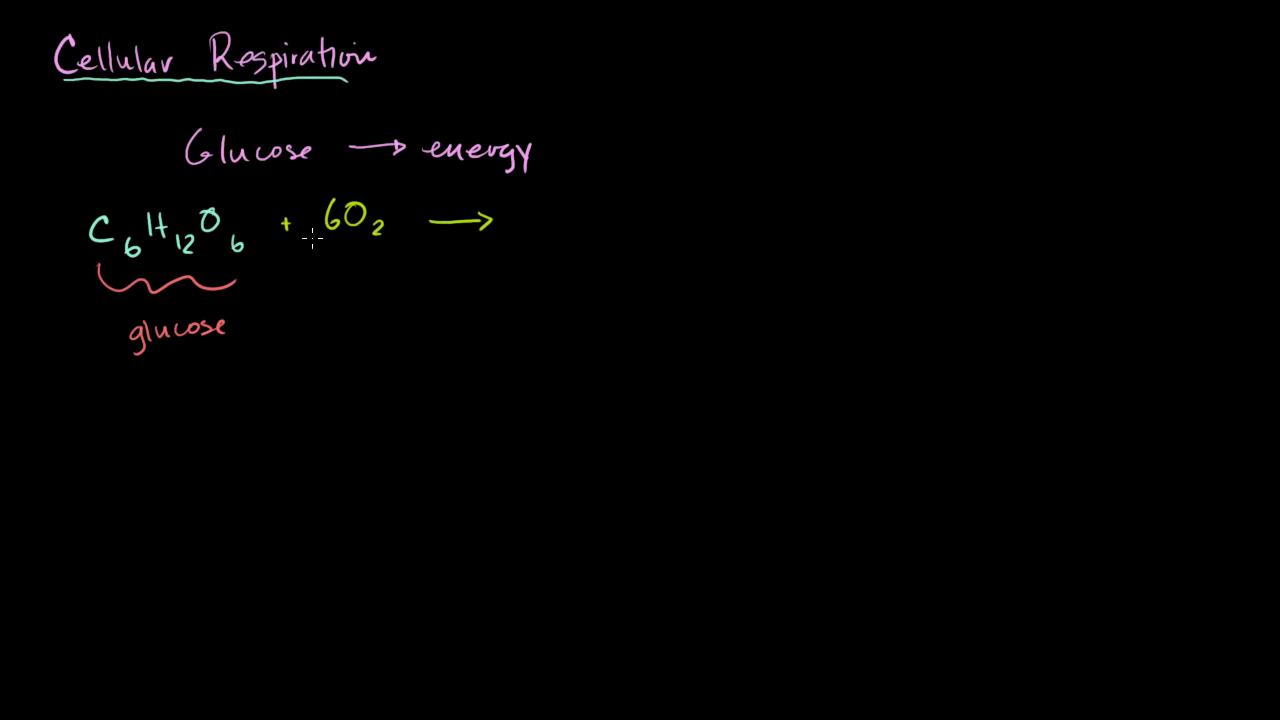 Cellular Respiration
Glucose → energy
C₆H₁₂O₆ + 6O₂ →
glucose